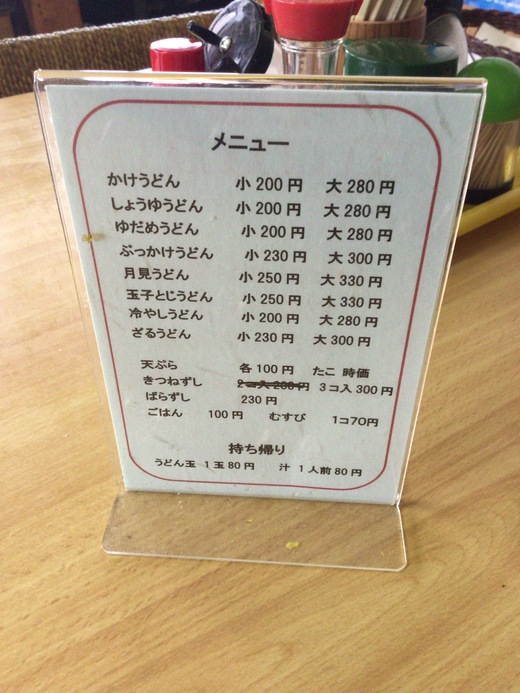 メニュー
かけうどん 小 200 円 大 280 円
しょうゆうどん 小 200 円 大 280 円
ゆだめうどん 小 200 円 大 280 円
ぶっかけうどん 小 230 円 大 300 円
月見うどん 小 250 円 大 330 円
玉子とじうどん 小 250 円 大 330 円
冷やしうどん 小 200 円 大 280 円
ざるうどん 小 230 円 大 300 円
天ぷら 各 100 円 たこ 時価
きつねずし 2コ入 200 円 3コ入 300 円
ばらずし 230 円
ごはん 100 円 むすび 1コ70円
持ち帰り
うどん玉 1玉 80 円 汁 1人前 80 円